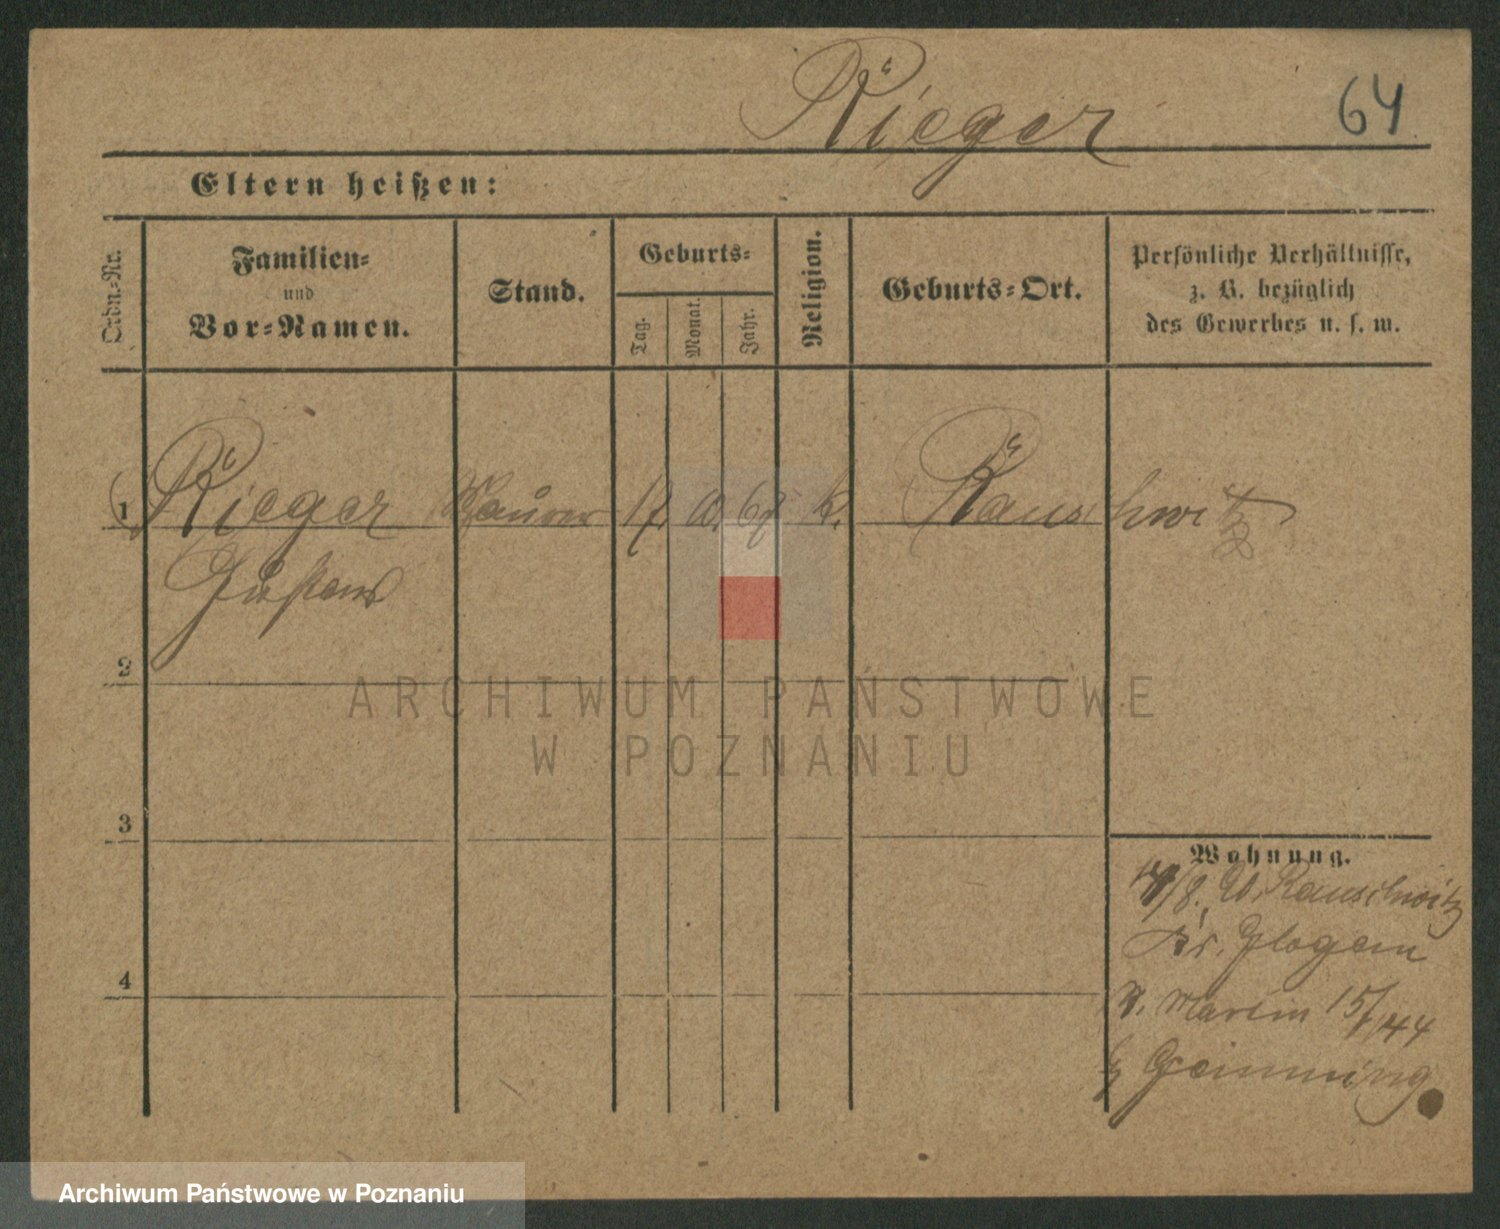 Rieger
64
Eltern heißen:
Ordn.-Nr.
Familien-
und
Vor-Namen.
Stand.
Geburts-
Tag.
Monat.
Jahr.
Religion.
Geburts-Ort.
Persönliche Verhältnisse,
z. B. bezüglich
des Gewerbes u. s. w.
1
Rieger
Maurer
17.
10.
k.
Rauschwitz
Gustav
2
ARCHIWUM PAŃSTWOWE
W POZNANIU
3
Wohnung.
Rauschwitz
Kr. Glogau
Martin 15/
4
Archiwum Państwowe w Poznaniu